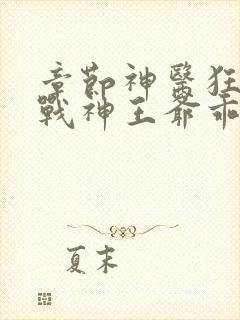 章節神醫狂
戰神王爺乖
夏末